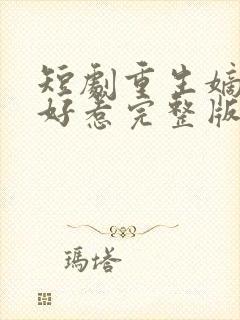 短劇重生嫡
好惹完整版
瑪塔